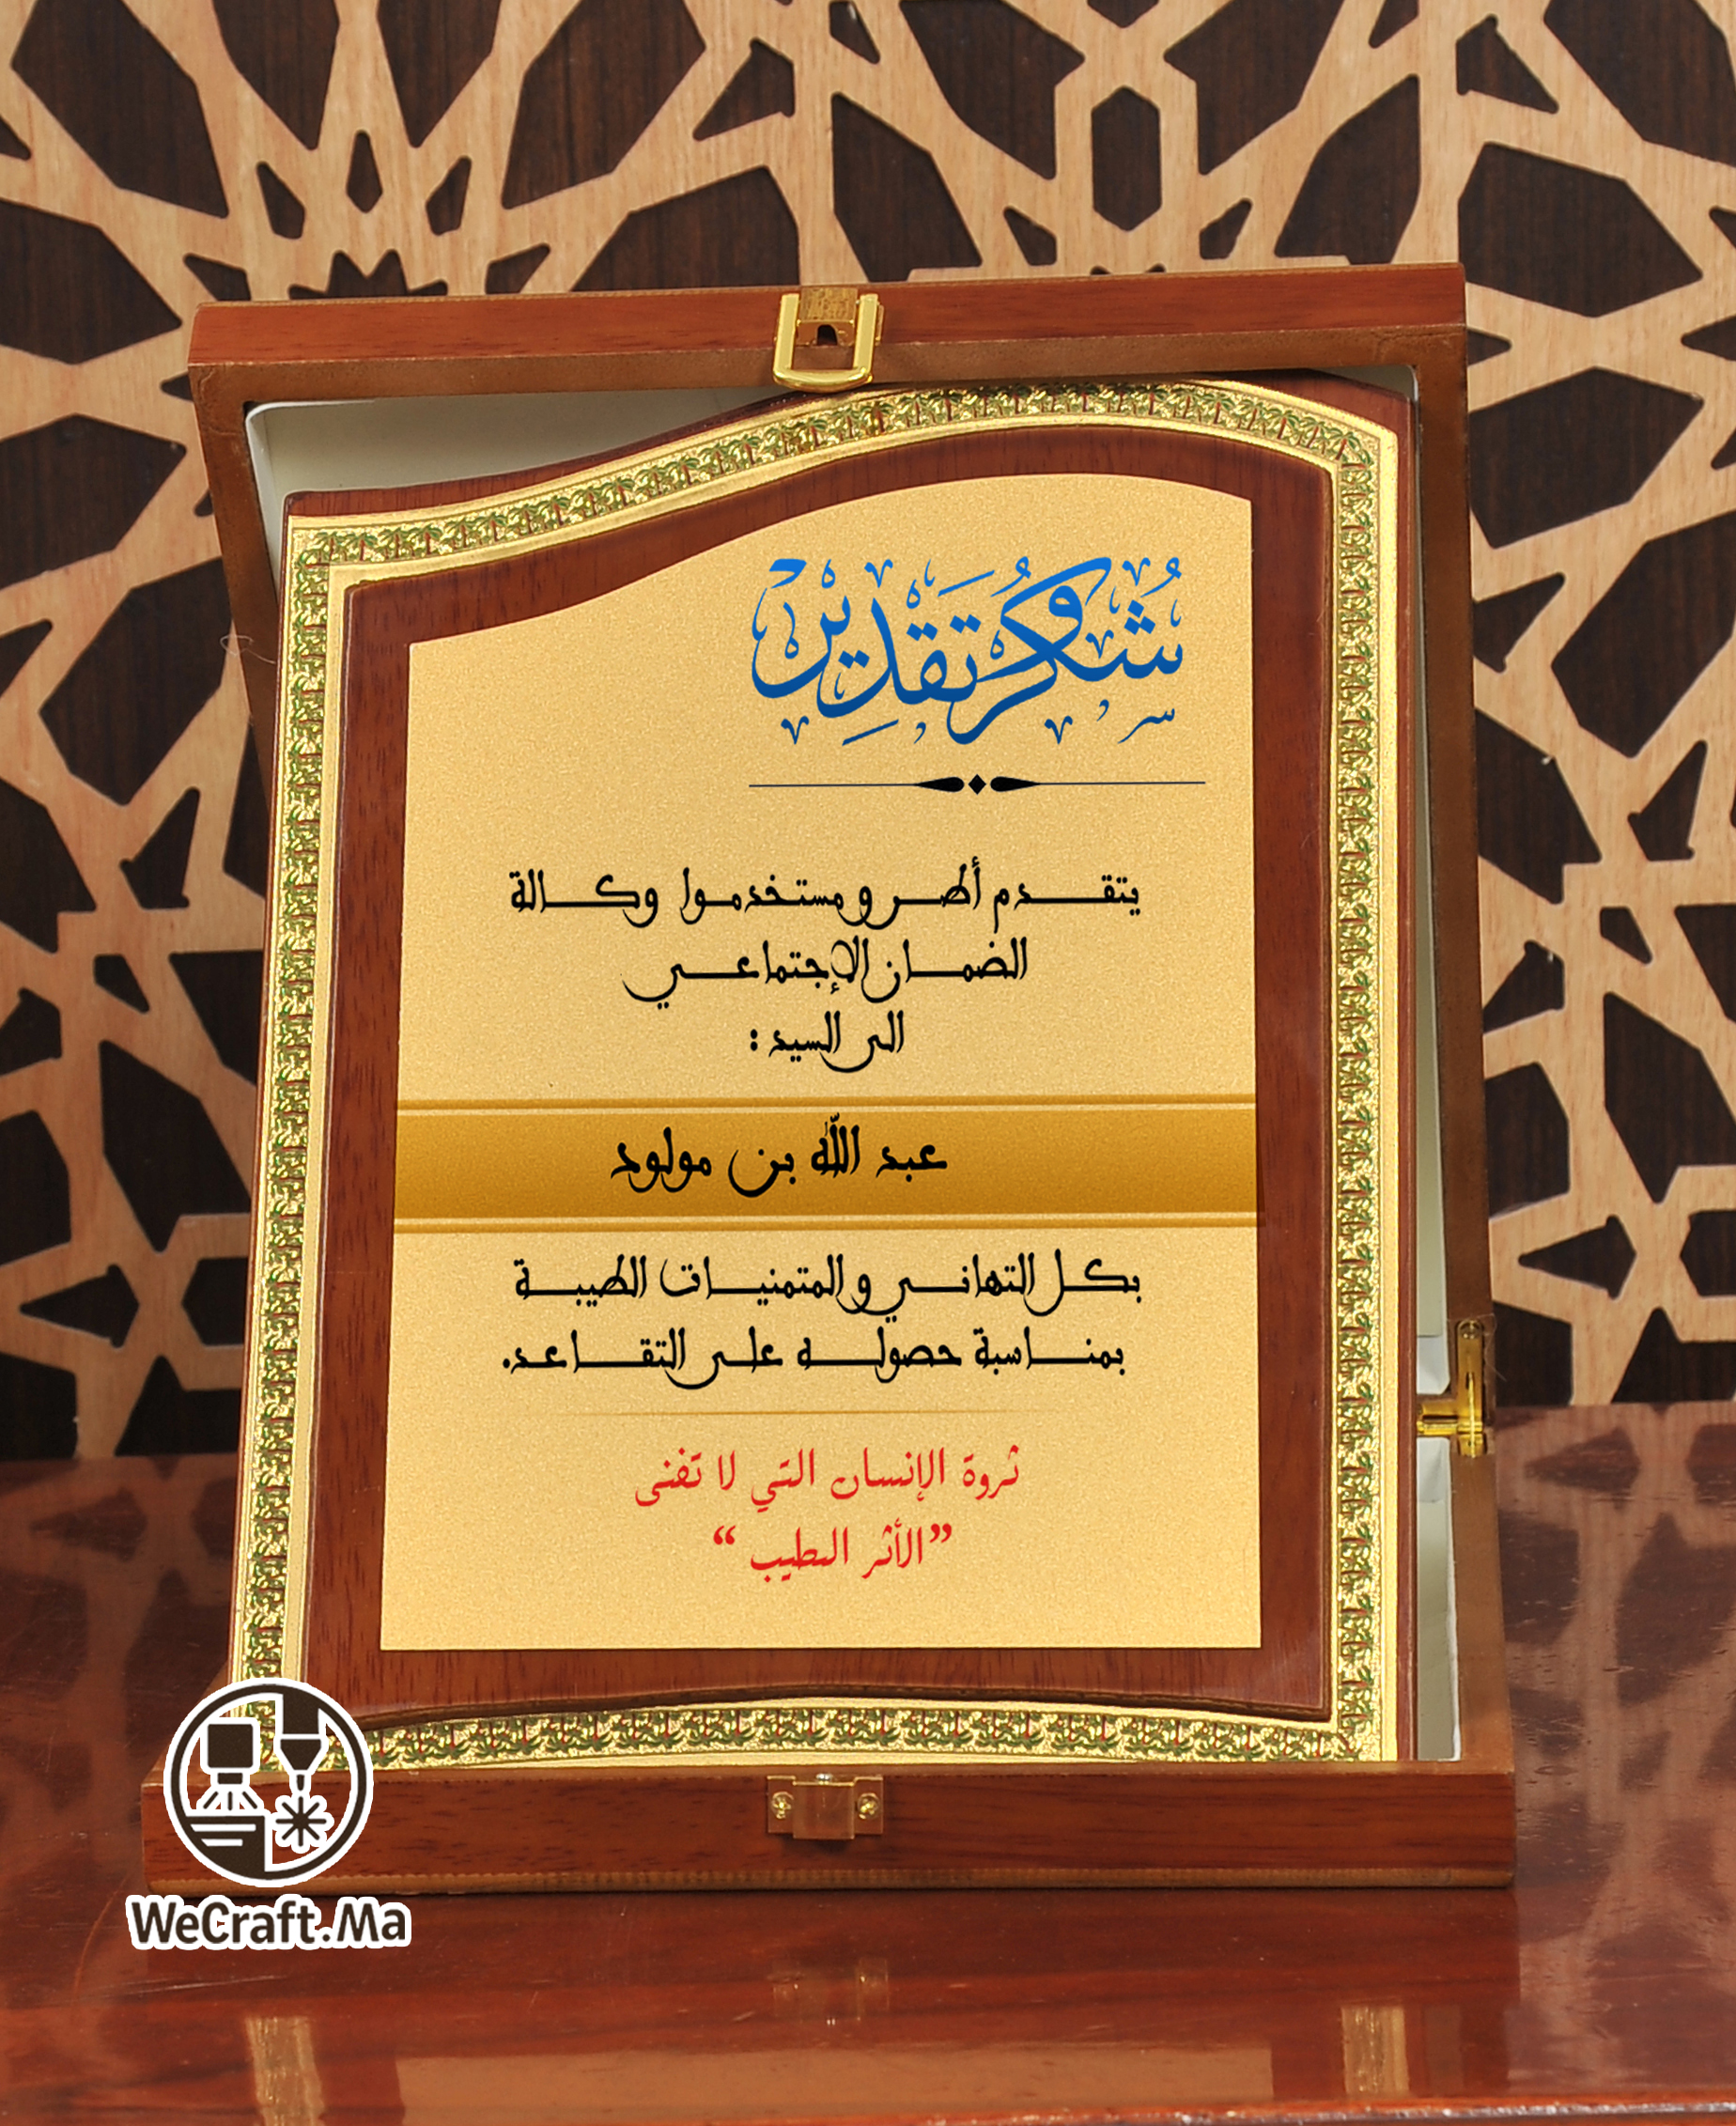 شُكْر وَتَقْدِير
يتقدم أطر و مستخدموا وكالة
الضمان الإجتماعي
الى السيد :
عبد الله بن مولود
بكل التهاني و المتمنيات الطيبة
بمناسبة حصوله على التقاعد.
ثروة الإنسان التي لا تفنى
”الأثر الطيب “
WeCraft.Ma